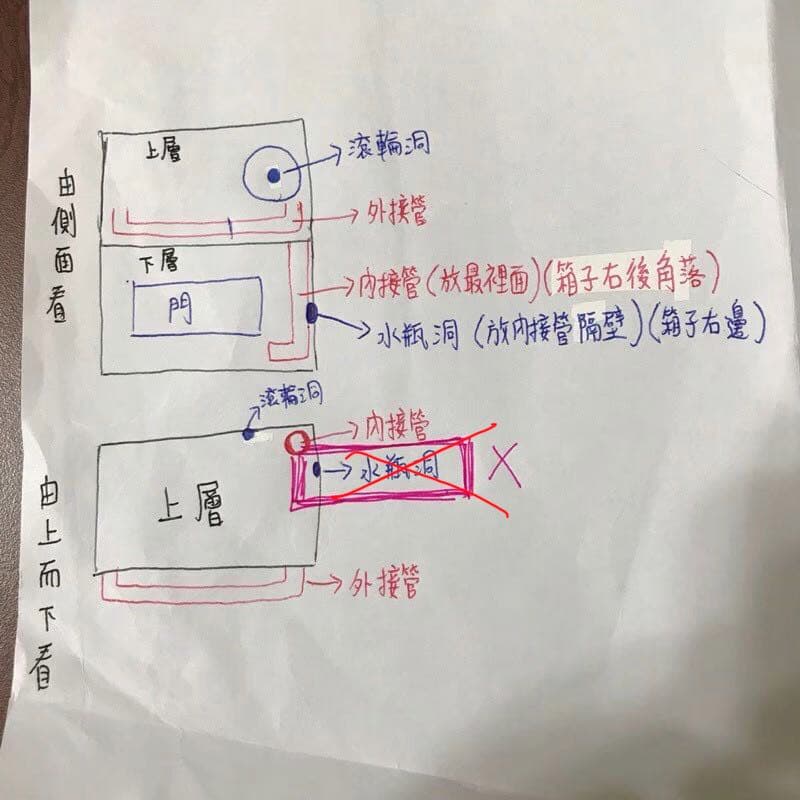 由側面看
上層
滾輪洞
外接管
下層
門
內接管(放最裡面)(箱子右後角落)
水瓶洞(放內接管隔壁)(箱子右邊)
由上而下看
滾輪洞
內接管
水瓶洞
X
上層
外接管